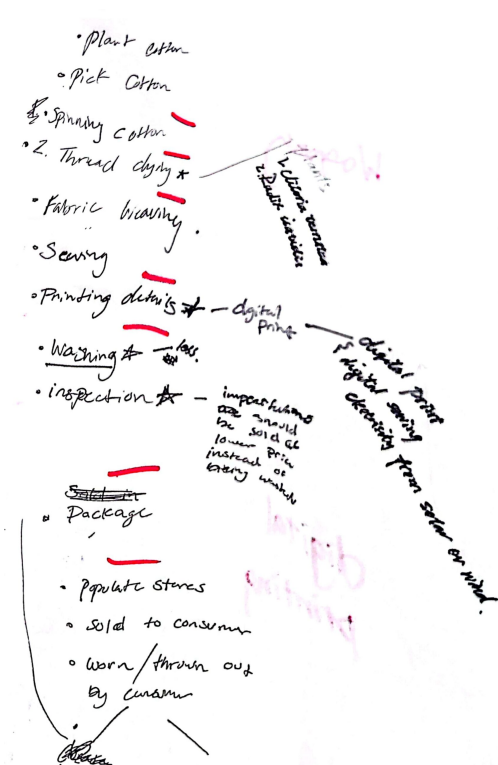 • Plant cotton
• Pick Cotton
• Spinning cotton
• 2. Thread dying
Plants
1. Clitoria
2. Radix
• Fabric weaving
• Sewing
• Printing details — digital print
digital print
digital sewing
electricity from solar or wind.
• Washing — less
• inspection — imperfections
should
be sold at
lower price
instead of
being wasted
Package
• populate stores
• sold to consumer
• worn / thrown out
by consumer
digital
printing